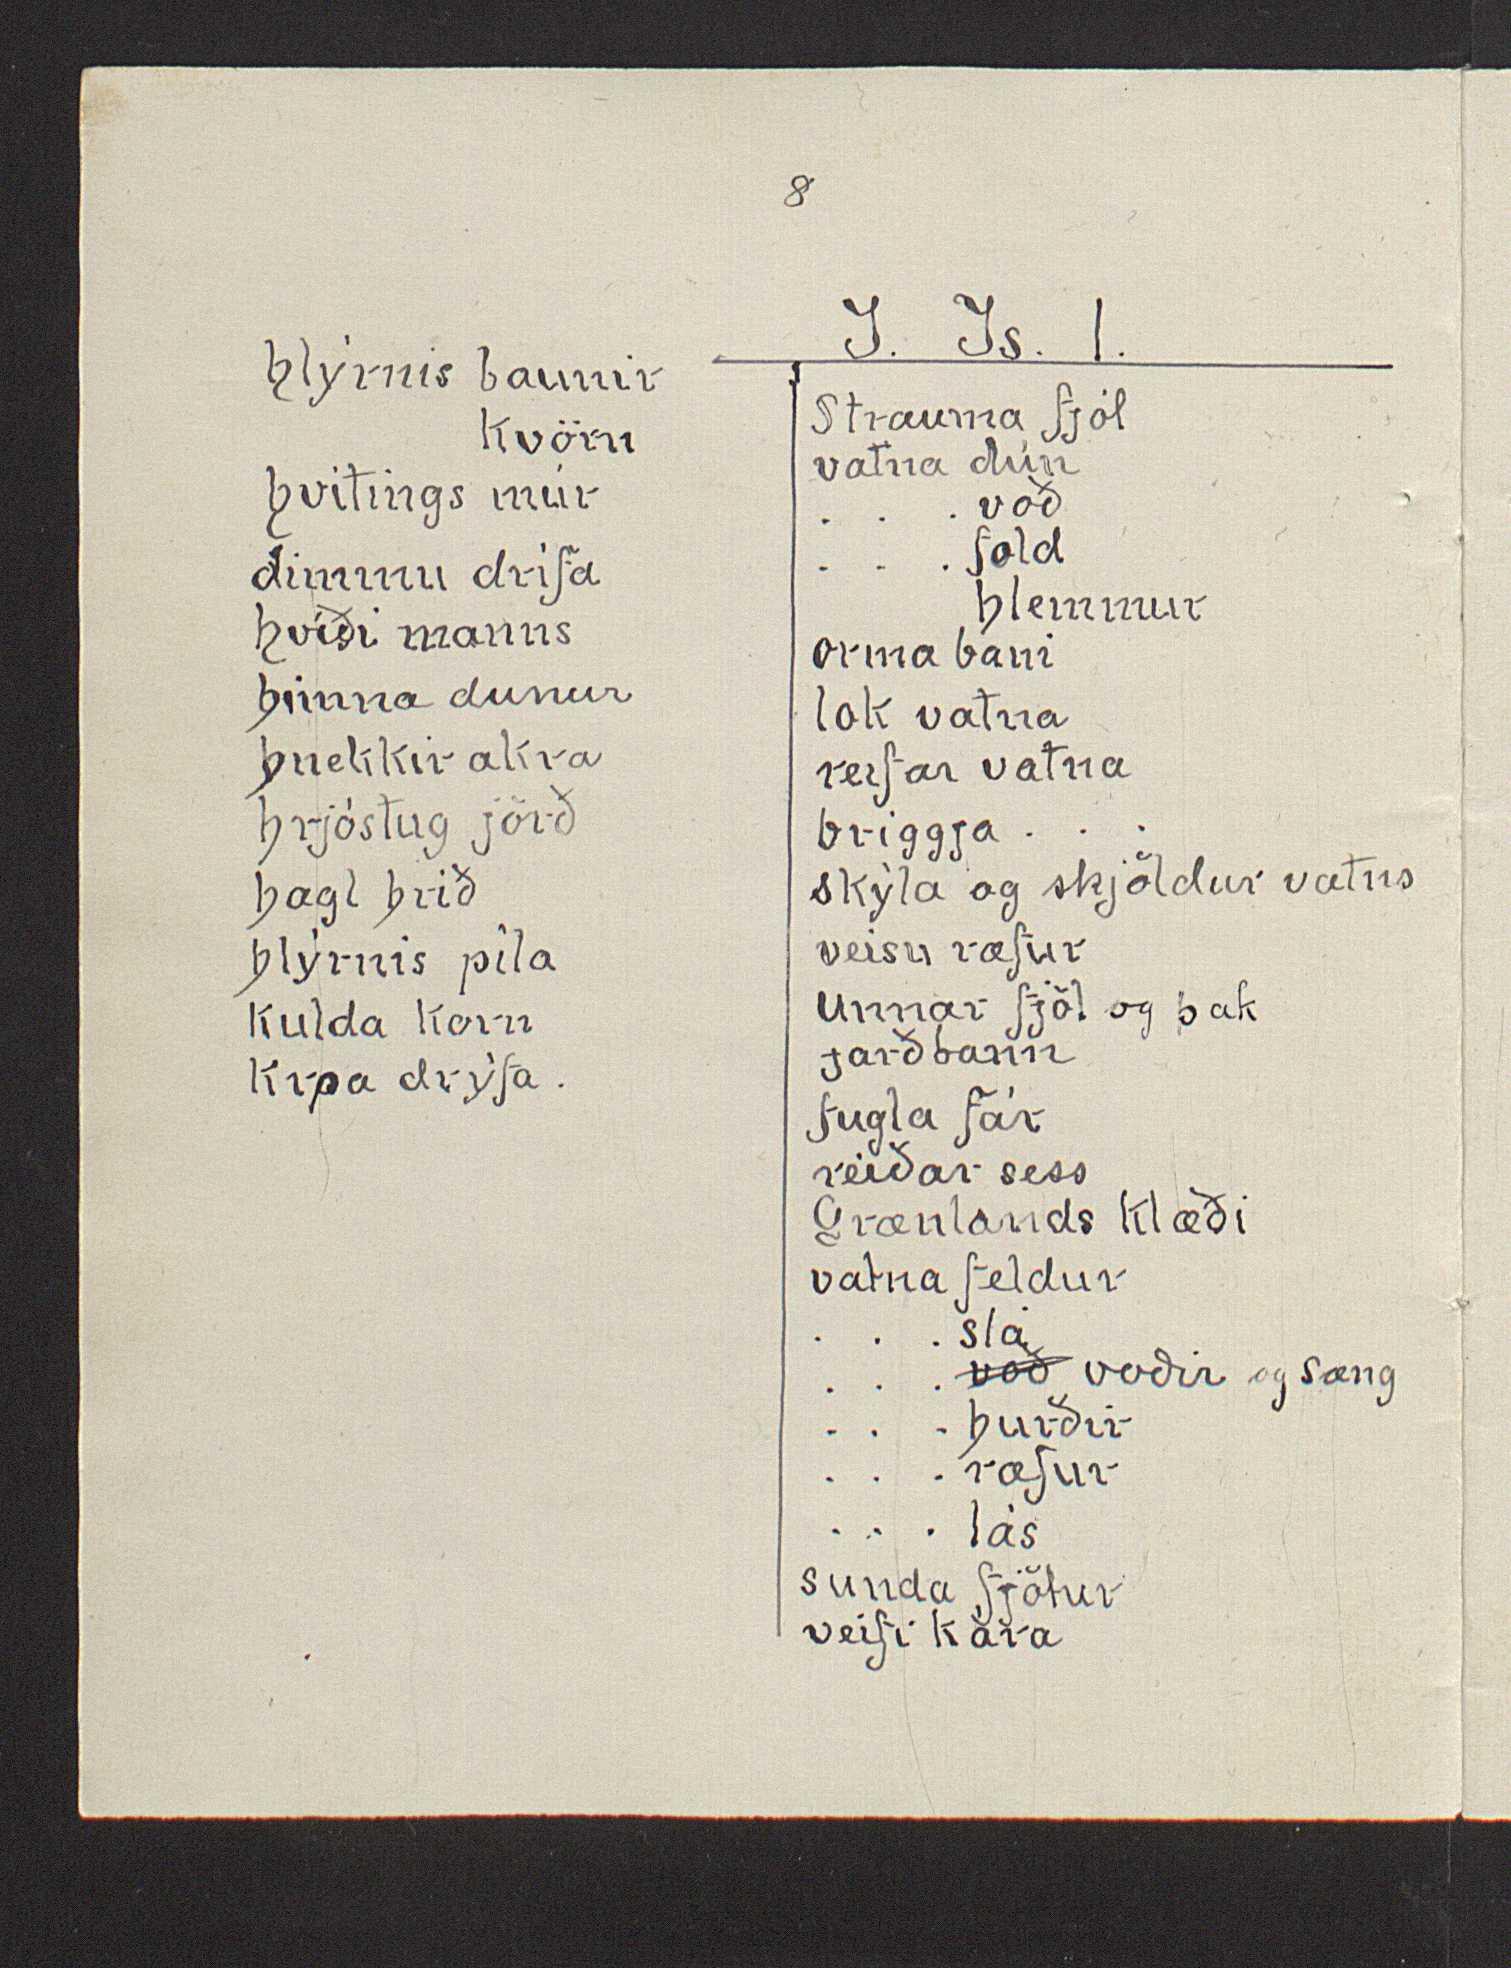 8
hlýrnis baunir
kvörn
hvítings múr
dimmu drífa
hvíði manns
hinna dunur
hnekkir akra
hrjóstug jörð
hagl hríð
hlýrnis píla
kulda korn
krpa drýfa.
I. Ís. 1.
Strauma fjöl
vatna dún
. . . voð
. . . fold
hlemmur
orma bani
lok vatna
reifar vatna
briggja . . .
skýla og skjöldur vatns
veisu ræfur
Unnar fjöl og þak
jarðbann
fugla fár
reiðar sess
Grænlands klæði
vatna feldur
. . . slá
. . . voð voðir og sæng
. . . hurðir
. . . ræfur
. . . lás
sunda fjötur
veifi kára